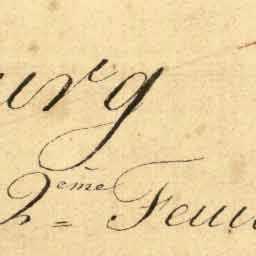 urg
2ème Feui